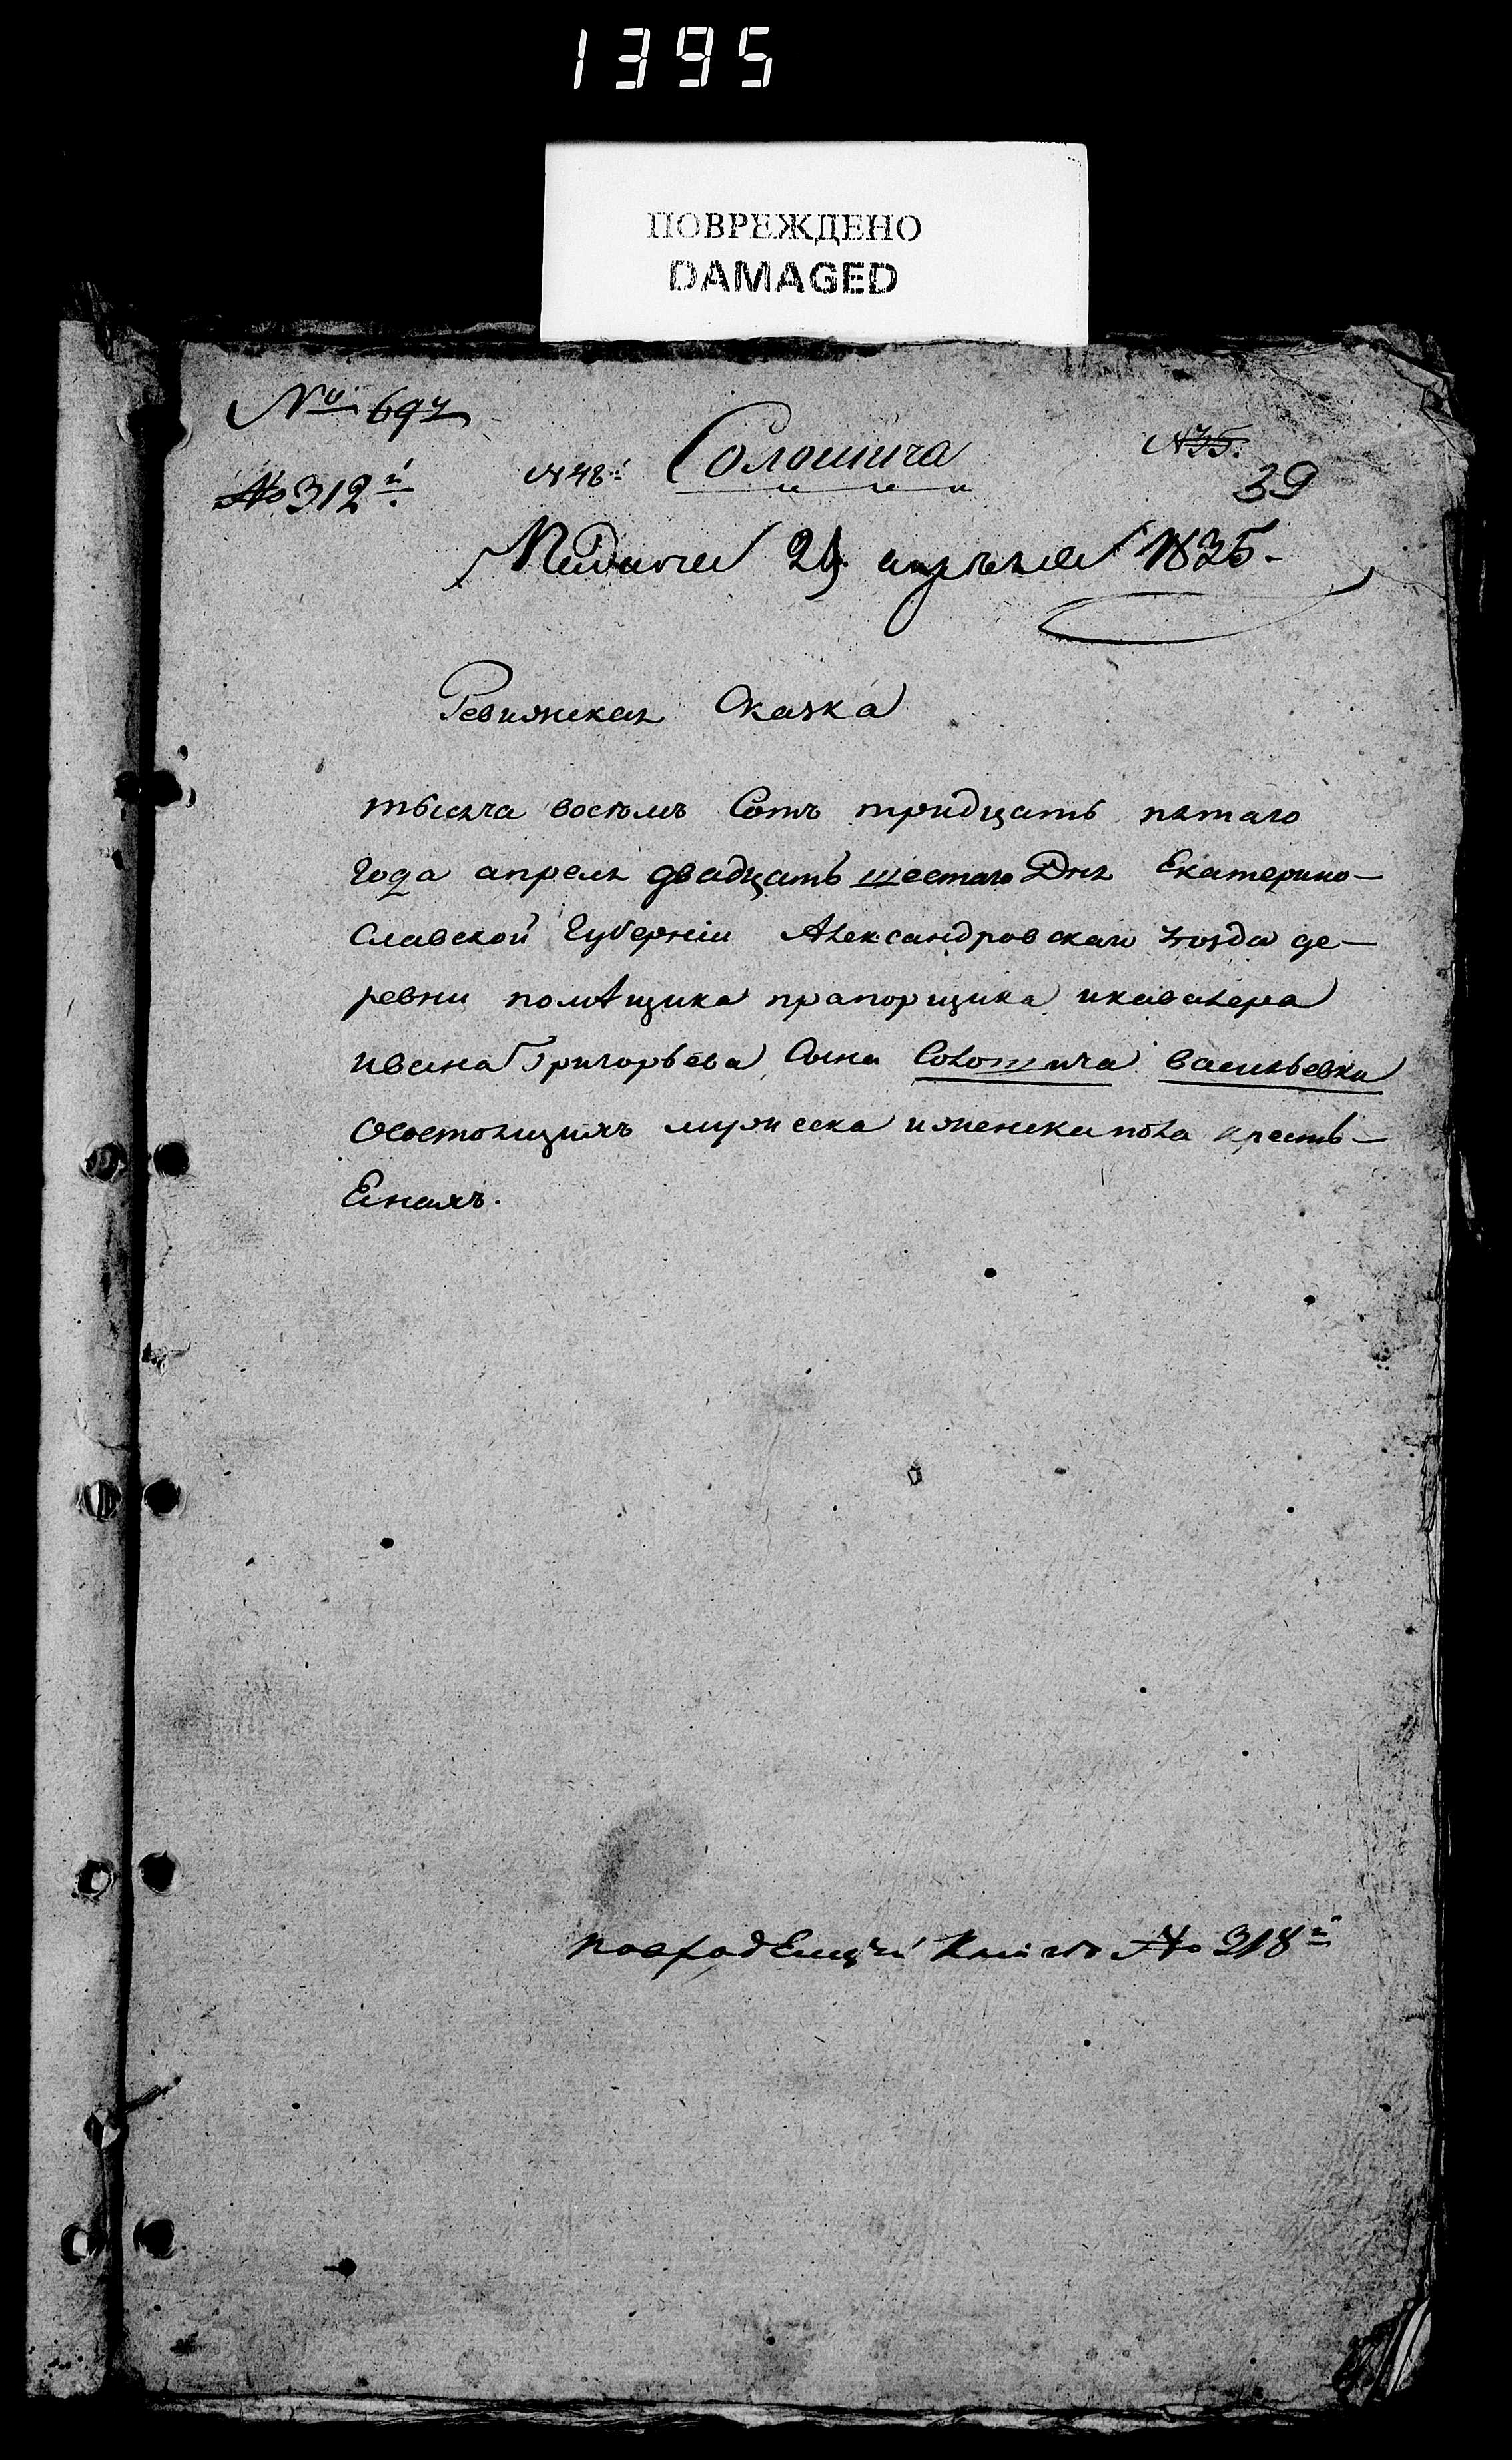 1395
ПОВРЕЖДЕНО
DAMAGED
№ 697
№ 312й
№ 48й Солошича № 35.
39
Подана 29 апреля 1835
Ревижская Сказка
тысяча восемь Сотъ тридцать пятаго
года апреля двадцать шестаго Дня Екатерино-
славской Губерніи Александровскаго уезда де-
ревни помѣщика прапорщика икавалера
ивана Григорьева Сына Солошича васильевки
Осостоящихъ мужеска иженска пола кресть-
Енахъ.
повходящей Книге № 318й